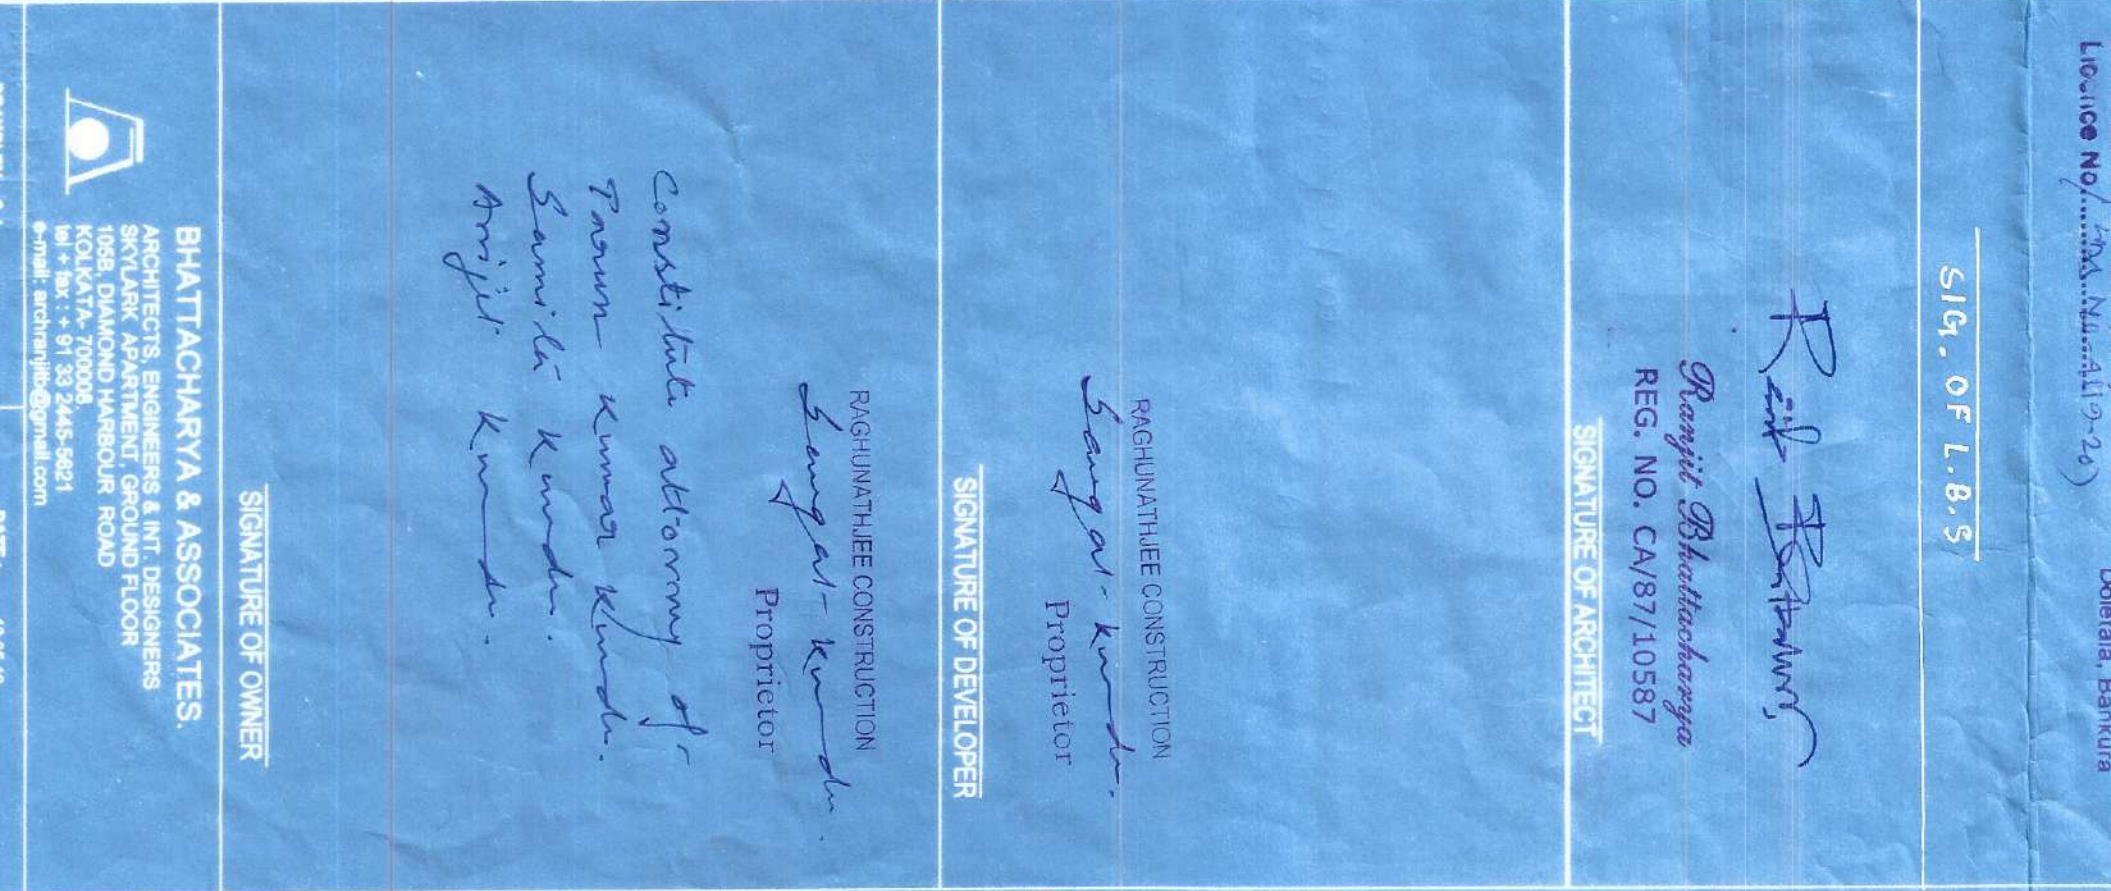 Dolelala, Bankura
Licence No/
SIG. OF L.B.S
Ranjit Bhattacharya
REG. NO. CA/87/10587
SIGNATURE OF ARCHITECT
RAGHUNATHJEE CONSTRUCTION
Saugat Kundu.
Proprietor
SIGNATURE OF DEVELOPER
RAGHUNATHJEE CONSTRUCTION
Saugat Kundu.
Proprietor
Constitute attorney of
Tarun Kumar Kundu.
Samita Kundu.
Arijit Kundu.
SIGNATURE OF OWNER
BHATTACHARYA & ASSOCIATES.
ARCHITECTS, ENGINEERS & INT. DESIGNERS
SKYLARK APARTMENT, GROUND FLOOR
105B, DIAMOND HARBOUR ROAD
KOLKATA- 700008.
tel + fax : + 91 33 2445-5621
e-mail: archranjitb@gmail.com